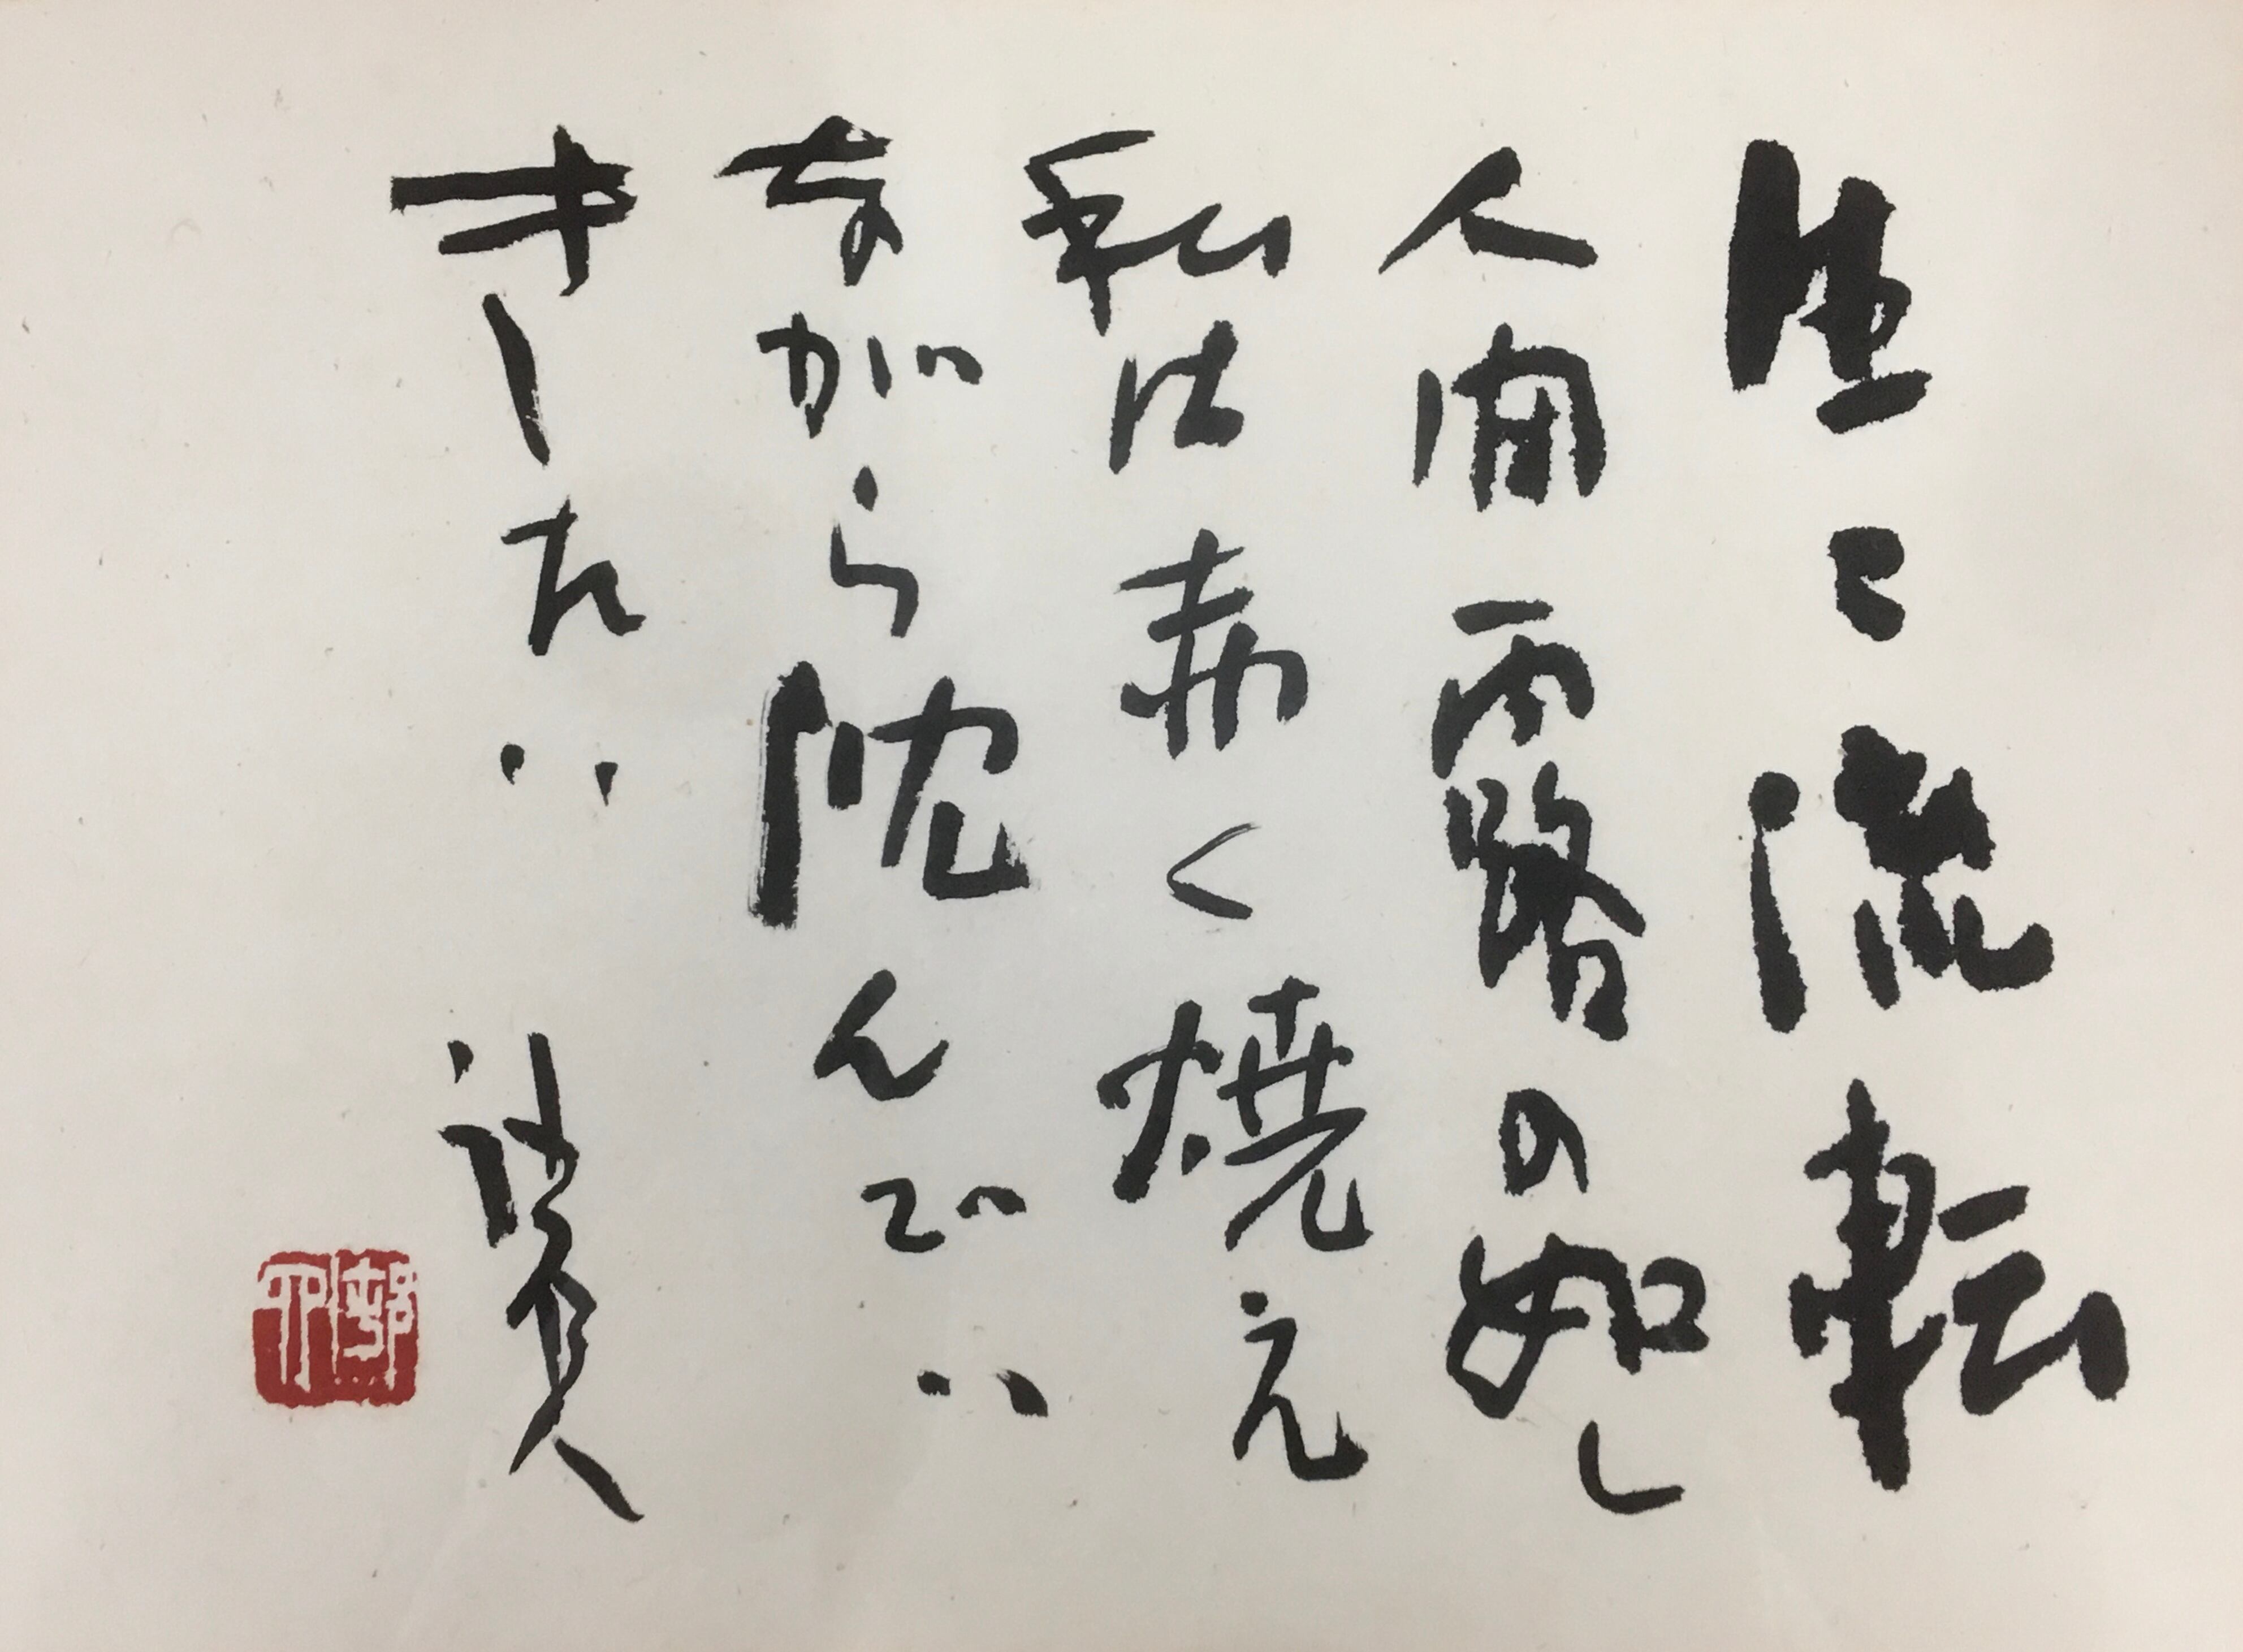 生々流転
人間雨露の如し
私は赤く焼え
ながら沈んでい
きたい